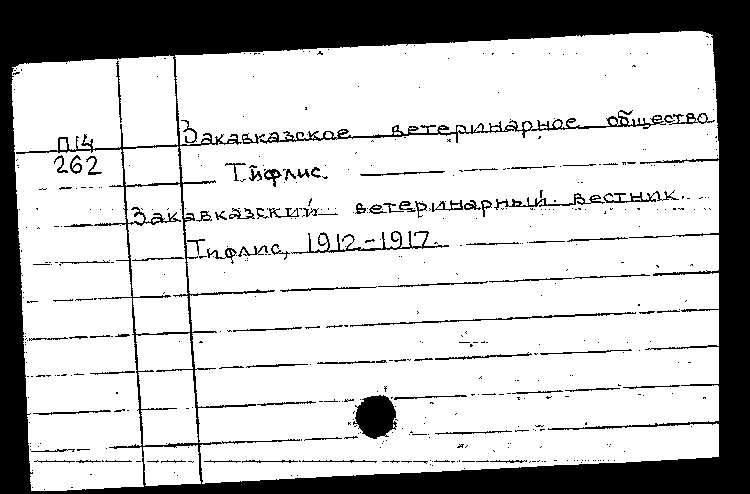 П14
262
Закавказское ветеринарное общество
Тифлис.
Закавказский ветеринарный вестник.
Тифлис, 1912-1917.